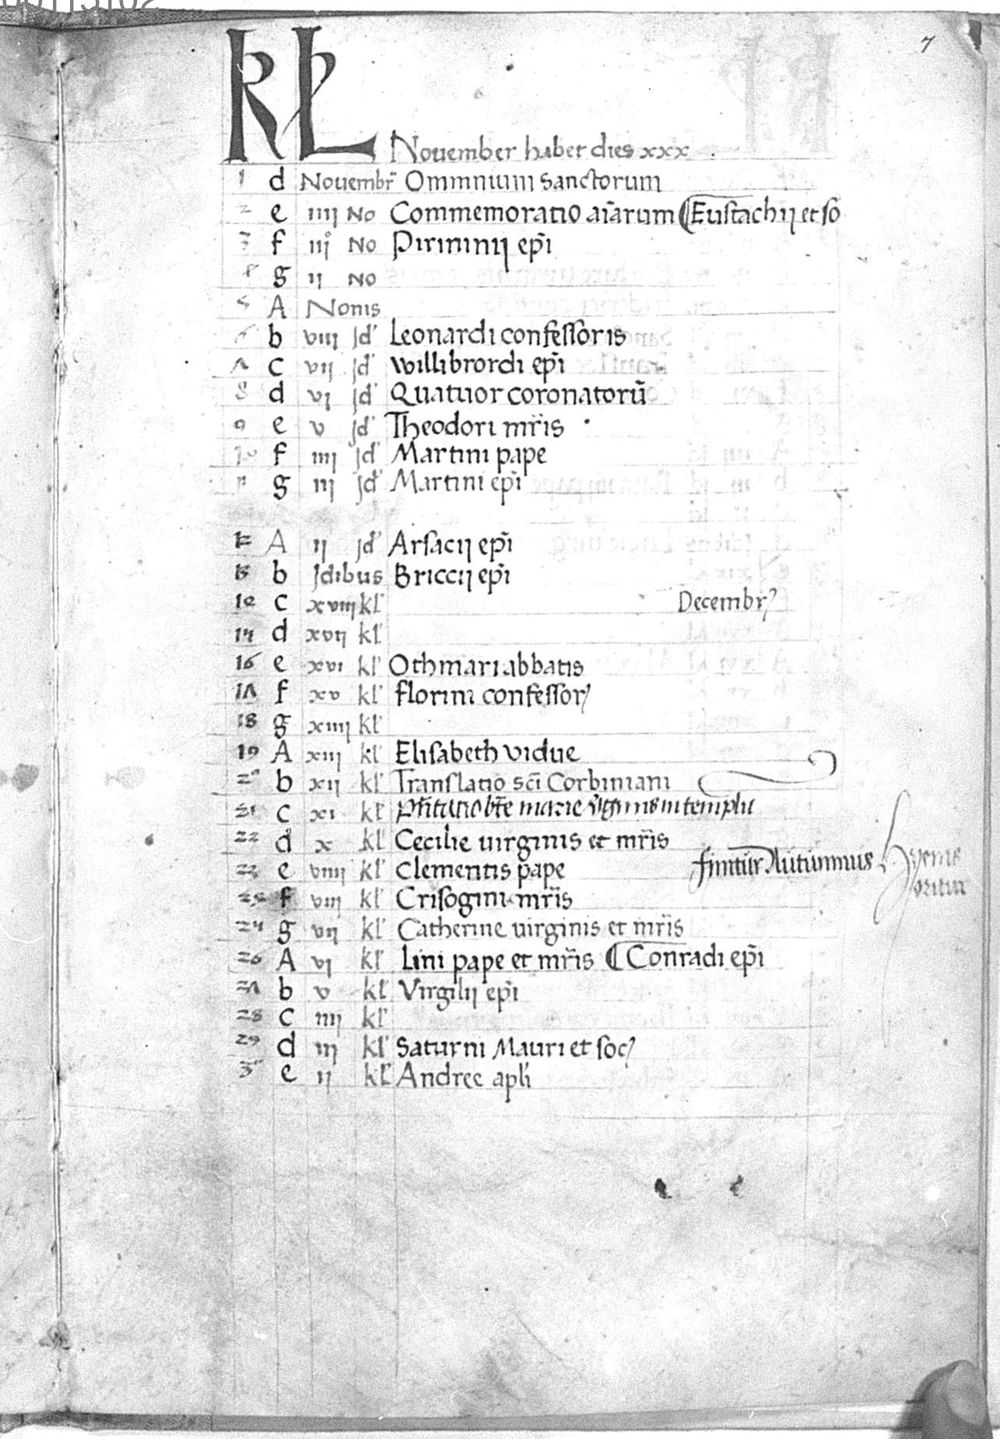 7
KL
November habet dies xxx
1 d Novembr̄ Ommnium sanctorum
2 e iiii No Commemoratio aīarum ⸿Eustachij et so
3 f iij No Pirminij ep̄i
4 g ij No
5 A Nonis
6 b viii Jd' Leonardi confessoris
7 c vij Jd' Willibrordi ep̄i
8 d vj Jd' Quatuor coronatorū
9 e v Jd' Theodori mr̄is
10 f iiij Jd' Martini pape
11 g iij Jd' Martini ep̄i
12 A ij Jd' Arsacij ep̄i
13 b Jdibus Briccij ep̄i
14 c xviii kl' Decembr
15 d xvij kl'
16 e xvi kl' Othmari abbatis
17 f xv kl' florini confessor
18 g xiiij kl'
19 A xiij kl' Elisabeth vidue
20 b xij kl' Translatio sc̄i Corbiniani
21 c xi kl' bt̄e marie v̄ginis in templū
22 d x kl' Cecilie virginis et mr̄is
23 e viiii kl' Clementis pape finitur Autumnus Hyems
oritur
24 f viij kl' Crisogini mr̄is
25 g vij kl' Catherine virginis et mr̄is
26 A vj kl' Lini pape et mr̄is ⸿Conradi ep̄i
27 b v kl' Virgilij ep̄i
28 c iiij kl'
29 d iij kl' Saturni Mauri et soc
30 e ij kl' Andree apl̄i